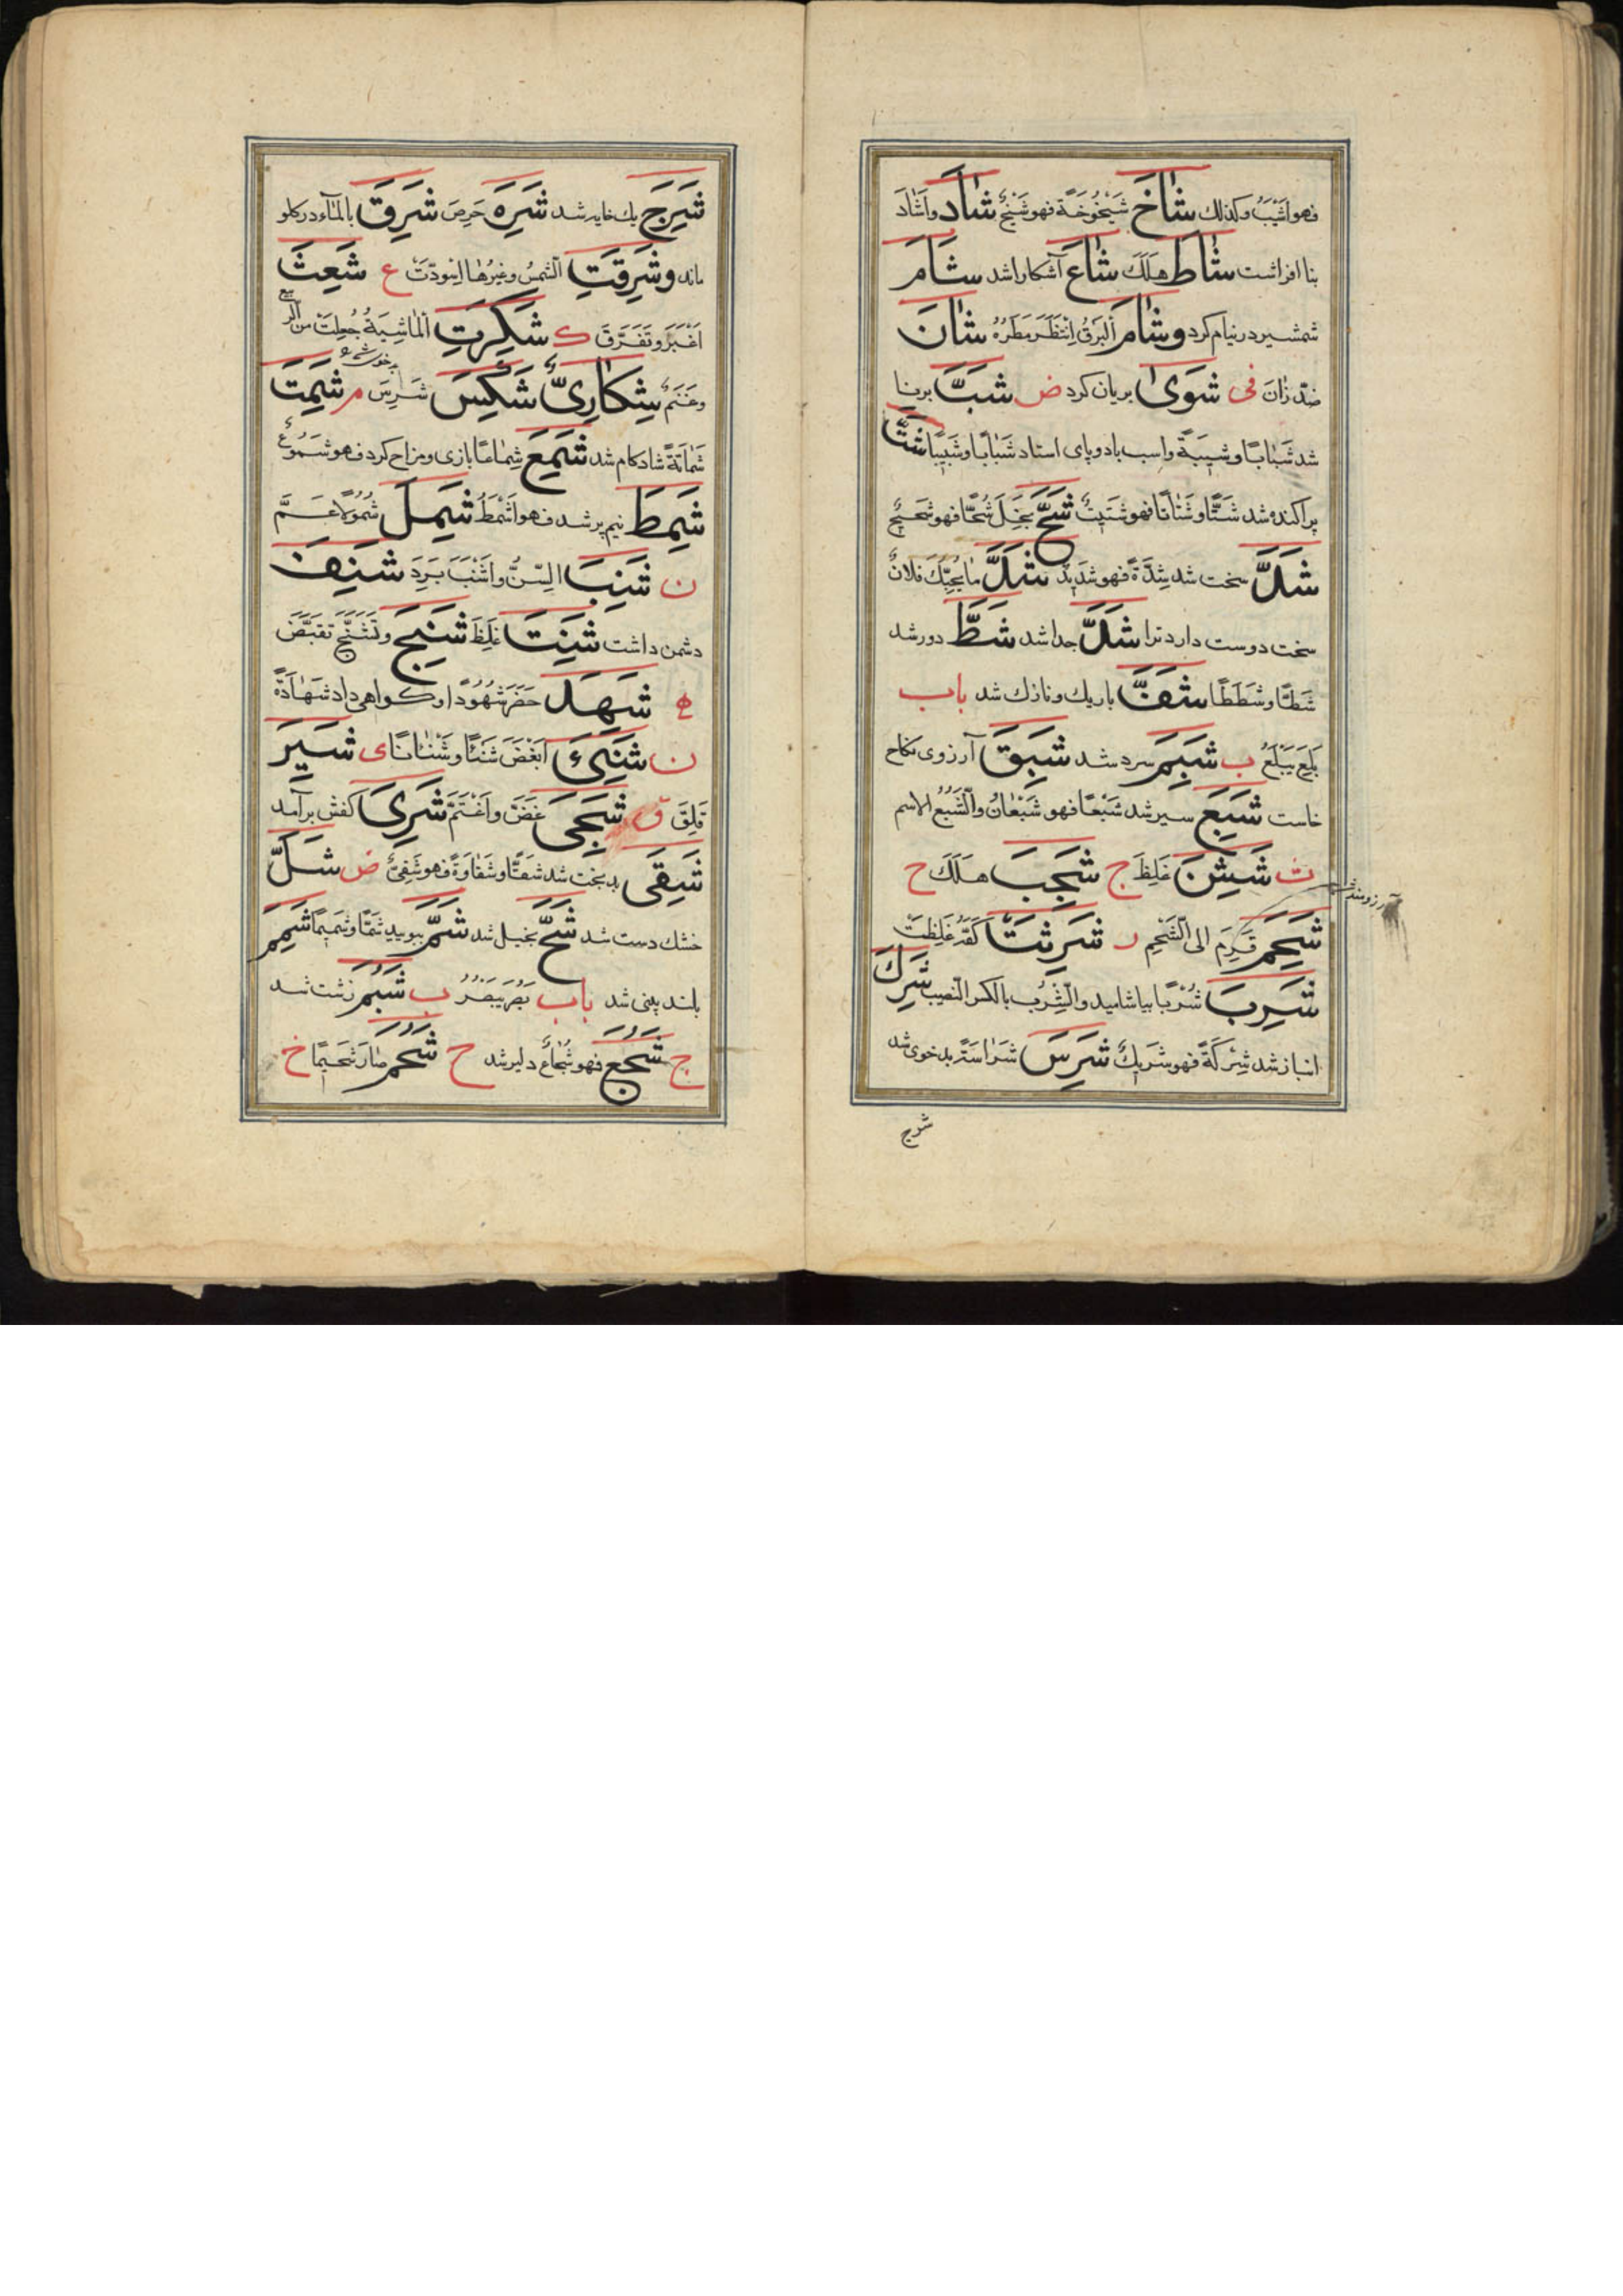 فهو اَشْيَبُ وكذلك شَاخَ شَيْخُوخَةً فهو شَيْخٌ شَادَ واَشَادَ
بنا افراشت شَاطَ هَلَكَ شَاعَ آشكارا شد شَامَ
شمشير در نيام كرد وشَامَ البَرْقَ اِنْتَظَرَ مَطَرَهُ شَانَ
ضدّ زَانَ فى شَوَىٰ بريان كرد ض شَبَّ برنا
شد شَبَابًا وشَبِيبَةً واسب باد و پاى استاد شَبَابًا وشَبِيبًا شَتَّ
پراكنده شد شَتًّا وشَتَاتًا فهو شَتِيتٌ شَحَّ بَخِلَ شُحًّا فهو شَحِيحٌ
شَدَّ سخت شد شِدَّةً فهو شَدِيدٌ شَدَّ مَا يُحِبُّكَ فلانٌ
سخت دوست دارد ترا شَذَّ جدا شد شَطَّ دور شد
شَطًّا وشَطَطًا شَفَّ باريك ونازك شد باب
بَلِعَ يَبْلَعُ ب شَبِمَ سرد شد شَبِقَ آرزوى نكاح
خاست شَبِعَ سير شد شَبْعًا فهو شَبْعَانُ والشِّبَعُ الاسم
ث شَثِنَ غَلِظَ ج شَجِبَ هَلَكَ ح
آرزومند شد
شَحِمَ قَرِمَ الى الشَّحْمِ ر شَرِثَتْ كَفُّهُ غَلِظَتْ
شَرِبَ شُرْبًا بياشاميد والشِّرْبُ بالكسر النّصيب شَرِكَ
انباز شد شِرْكَةً فهو شَرِيكٌ شَرِسَ شَرَاسَةً بدخوى شد
شرج
شَرِجَ يك خايه شد شَرِهَ حَرِصَ شَرِقَ بالماء در كلو
ماند وشَرِقَتِ الشمسُ وغيرُها اِسْوَدَّتْ ع شَعِثَ
اَغْبَرَ وتَفَرَّقَ ك شَكِرَتِ الماشِيَةُ جُعِلَتْ من الربيع
بد خوى شد
وغَنَمٌ شَكَارِىٌّ شَكِسَ شَرِسَ م شَمِتَ
شَمَاتَةً شادكام شد شَمِعَ شِمَاعًا بازى ومزاح كرد فهو شَمُوعٌ
شَمِطَ نيم پر شد فهو اَشْمَطُ شَمِلَ شُمُولًا عَمَّ
ن شَنِبَ السِّنُّ واَشْنَبَ بَرِدَ شَنِفَ
دشمن داشت شَنِثَ غَلِظَ شَنِجَ وتَشَنَّجَ تقبَّضَ
ه شَهِدَ حَضَرَ شُهُودًا وكواهى داد شَهَادَةً
ن شَنِئَ اَبْغَضَ شَنْئًا وشَنْئَانًا ى شَيِرَ
قَلِقَ ق شَجِىَ غَضَّ واَغْتَمَّ شَرِىَ كفش برآمد
شَقِىَ بدبخت شد شقًّا وشَقَاوَةً فهو شَقِىٌّ ض شَلَّ
خشك دست شد شَحَّ بخيل شد شَمَّ ببوييد شَمًّا وشَمِيمًا شَمِمَ
بلند بينى شد باب بَصُرَ يَبْصُرُ ب شَبُمَ زشت شد
ج شَجُعَ فهو شُجَاعٌ دلير شد ح شَحُمَ صَارَ شَحِيمًا خ